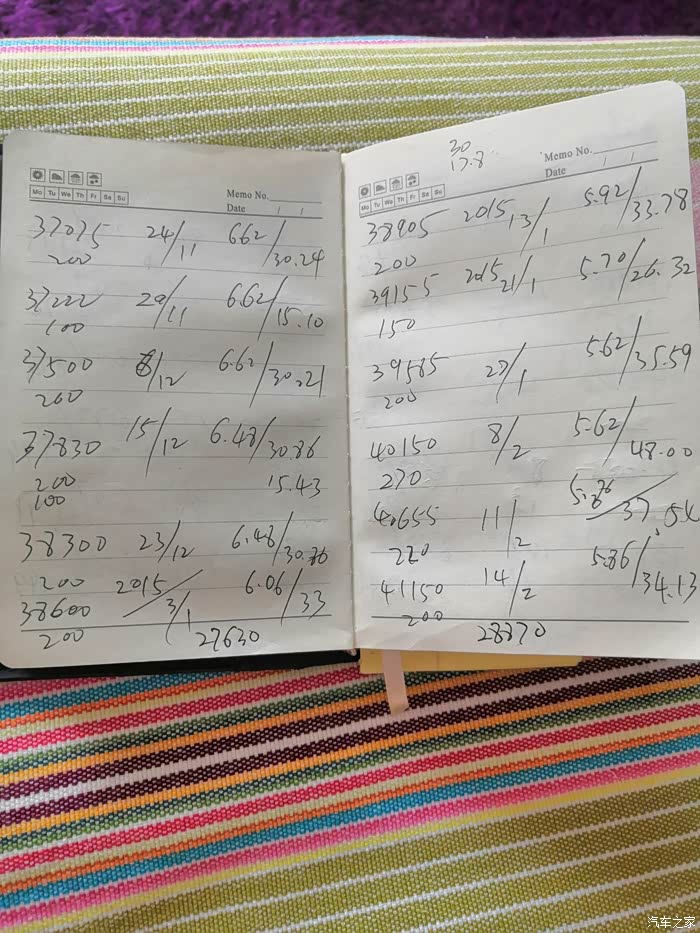 Mo Tu We Th Fr Sa Su
Memo No.
Date / /
37075 24/11 6.62/30.24
200
37222 29/11 6.62/15.10
100
37500 8/12 6.62/30.21
200
37830 15/12 6.48/30.86
200 15.43
100
38300 23/12 6.48/30.86
200
38600 2015 3/1 6.06/33
200
27630
30
17.8
Mo Tu We Th Fr Sa Su
Memo No.
Date / /
38905 2015 13/1 5.92/33.78
200
39155 2015 21/1 5.70/26.32
150
39585 27/1 5.62/35.59
200
40150 8/2 5.62/48.00
270
40655 11/2
220
41150 14/2 5.86/34.13
200
28870
汽车之家